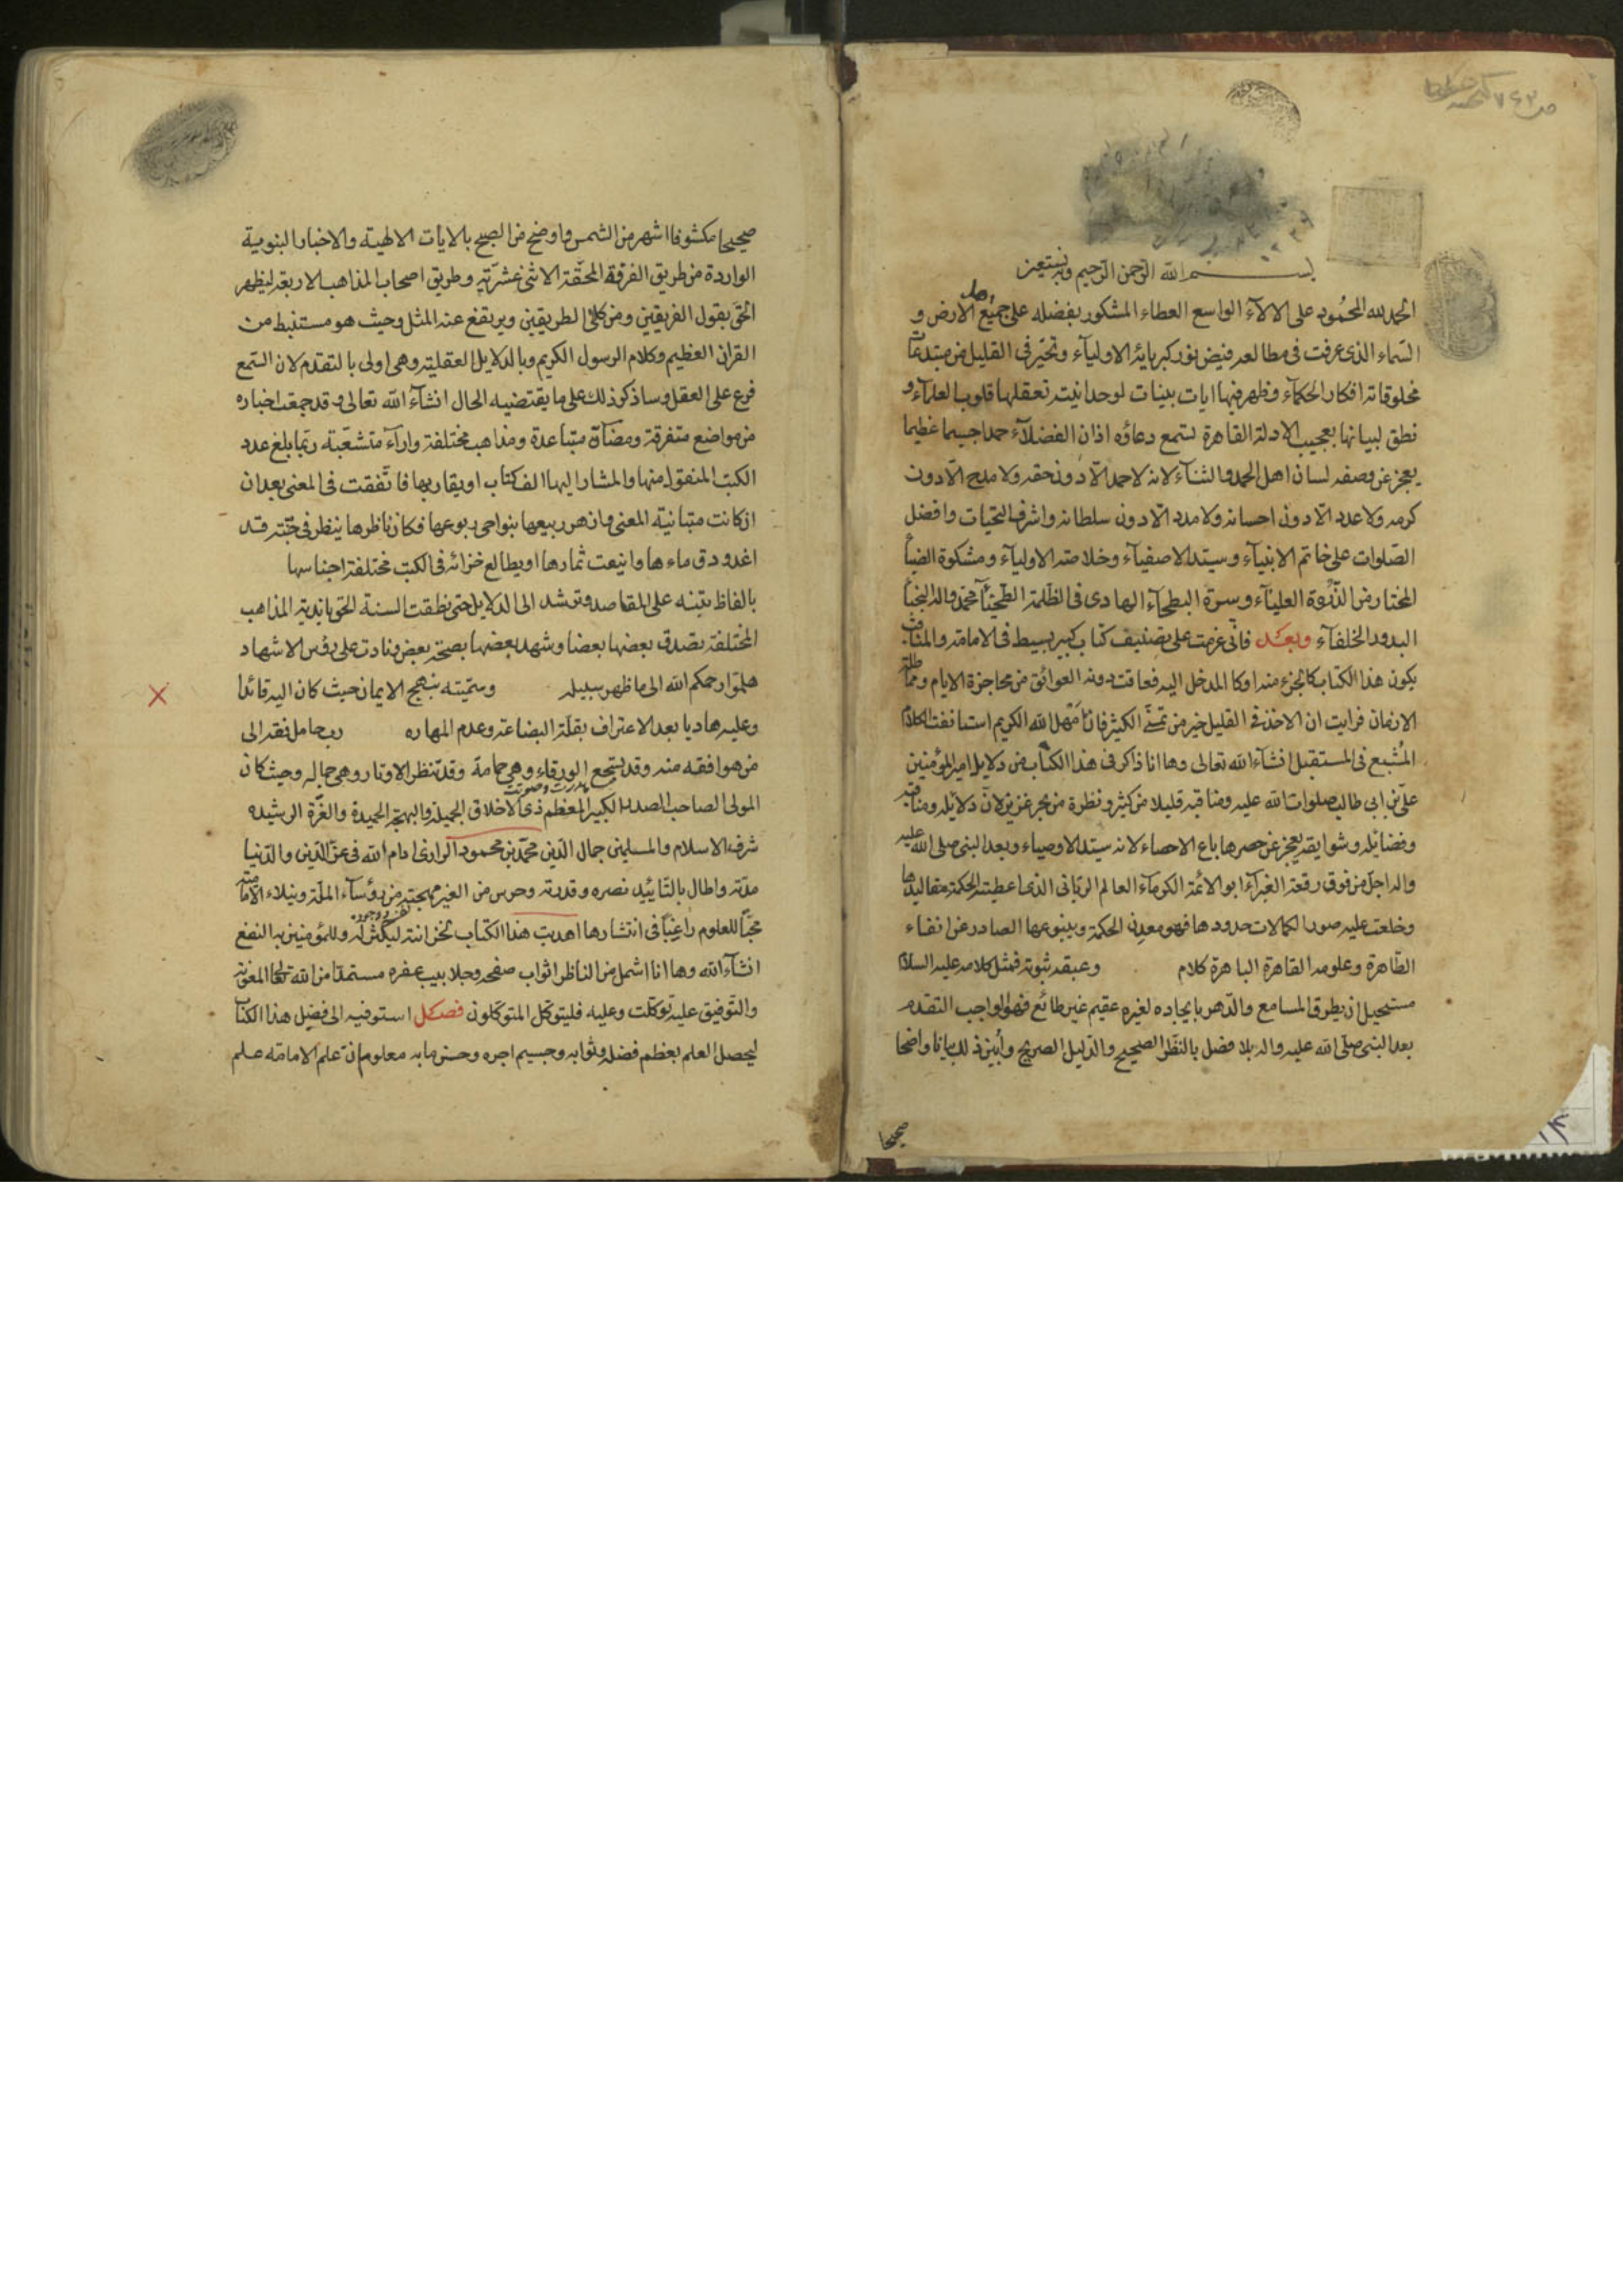 بسم الله الرحمن الرحيم وبه نستعين
الحمد لله المحمود على الالآء الواسع العطاء المشكور بفضله على جميع اهل الارض و
السماء الذى غرقت فى مطالعه فيض نور كبريائه الاوليآء وتحير فى القليل من مبتدعات
مخلوقاته افكار الحكمآء وظهر فيها ايات بينات لوحدانيته تعقلها قلوب العلمآء و
نطق لبيانها بعجيب الادلة القاهرة لتسمع دعاؤه اذان الفضلآء حمدا جسيما عظيما
يعجز عن وصفه لسان اهل الحمد والثنآء لانه لاحمد الّا دون حقه ولا مدح الّا دون
كرمه ولا عدد الّا دون احسانه ولا مدد الّا دون سلطانه واشرف التحيات وافضل
الصّلوات على خاتم الانبيآء وسيّد الاصفيآء وخلاصة الاوليآء ومشكوة الضيآ
المختار من الذّروة العليآء وسرة البطحآء الهادى فى الظلمة محمد واله النجبآ
البدور الخلفآء وبعد فانى عزمت على تصنيف كتاب كبير بسيط فى الامامة والمناقب
يكون هذا الكتاب كالجزء منه اوكا المدخل اليه فعاقت دونه العوائق من محاجزة الايام ومماطلة
الازمان فرايت ان الاخذ فى القليل خير من تمنّى الكثير فان امهل الله الكريم استانفت الكلام
المُشبع فى المستقبل انشآء الله تعالى وها انا ذاكر فى هذا الكتاب من دلايل امير المؤمنين
علىّ بن ابى طالب صلوات الله عليه ومناقبه قليلا من كثير ونظرة من بحر غزير لانّ دلائله ومناقبه
وفضائله وسوابقه يعجز عن حصرها باع الاحصاء لانه سيّد الاوصياء وبعد النبى صلى الله عليه
واله اجلّ من فوق رقعة الغبرآء ابو الائمة الكرمآء العالم الربّانى الذى اعطيته الحكمة مقاليدها
وخلعت عليه صور الكمالات حدودها فهو معدن الحكمة وينبوعها الصادر عن انفاء
الطّاهرة وعلومه القاهرة الباهرة كلام وعبقه ثبوته فمثل كلامه عليه السلام
مستحيل ان يطرق المسامع والدّهر بايجاده لغيره عقيم غير طائع فهو الواجب التقدم
بعد النبى صلى الله عليه واله بلا فصل بالنظر الصحيح والدّليل الصريح وأُبيّن ذلك بيانا واضحا
صحيحا
صحيحا مكشوفا اشهر من الشمس واوضح من الصبح بالايات الالهية والاخبار النبوية
الواردة من طريق الفرقة المحقّة الاثنى عشريّة وطريق اصحاب المذاهب الاربعة ليظهر
الحق بقول الفريقين ومن كلى الطريقين ويرتفع عنه المثل وحيث هو مستنبط من
القران العظيم وكلام الرسول الكريم وبالدلايل العقلية وهى اولى بالتقدم لان السّمع
فرع على العقل وساذكر ذلك على ما يقتضيه الحال انشآء الله تعالى وقد جمعت اخباره
من مواضع متفرقة ومضآنّ متباعدة ومذاهب مختلفة وارآء متشعّبة ربّما بلغ عدد
الكتب المنقول منها والمشار اليها الف كتاب او يقاربها فاتّفقت فى المعنى بعد ان
ان كانت متباينة المعنى وازهر ربيعها بنواحى ربوعها فكان ناظرها ينظر فى جنّة قد
اغدودق ماءها واينعت ثمارها او يطالع خزائه فى الكتب مختلفة اجناسها
بالفاظ بيّنه على المقاصد وترشد الى الدلايل حتى نطقت السنة الحق باندية المذاهب
المختلفة بصدق بعضها بعضا وشهد بعضها بصحة بعض ونادت على رؤس الاشهاد
هلمّوا رحمكم الله الى ما ظهر سبيله وسمّيته بنهج الايمان حيث كان اليه قائدا
وعليه هاديا بعد الاعتراف بقلّة البضاعة وعدم المهاره رب حامل فقه الى
من هو افقه منه وقد يسجع الورقاء وهى حمامة وقد تنظر الاوتار وهى جماله وحيث كان
المولى الصاحب الصدر الكبير المعظم ذى الاخلاق الجميلة والبهجة الحميدة والغرّة الرشيده
شرف الاسلام والمسلمين جمال الدّين محمّد بن محمود الرازى ادام الله فى عزّ الدّين والدّنيا
مدّته واطال بالتّاييد نصره وقدرته وحرس من الغير مهجته من رؤسآء الملّة ونبلاء الامامية
محبّا للعلوم راغبًا فى انتشارها اهديت هذا الكتاب لخزانته ليكثر له وللمؤمنين به النفع
انشآء الله وها انا اشمل من الناظر اثواب صفحه وجلابيب عفره مستمدّا من الله تعالى المعونة
والتوفيق عليه توكّلت وعليه فليتوكّل المتوكّلون فصل استوفيه الى فضيل هذا الكتاب
ليحصل العلم بعظم فضله وثوابه وجسيم اجره وحسن مابه معلوم انّ علم الامامة علم